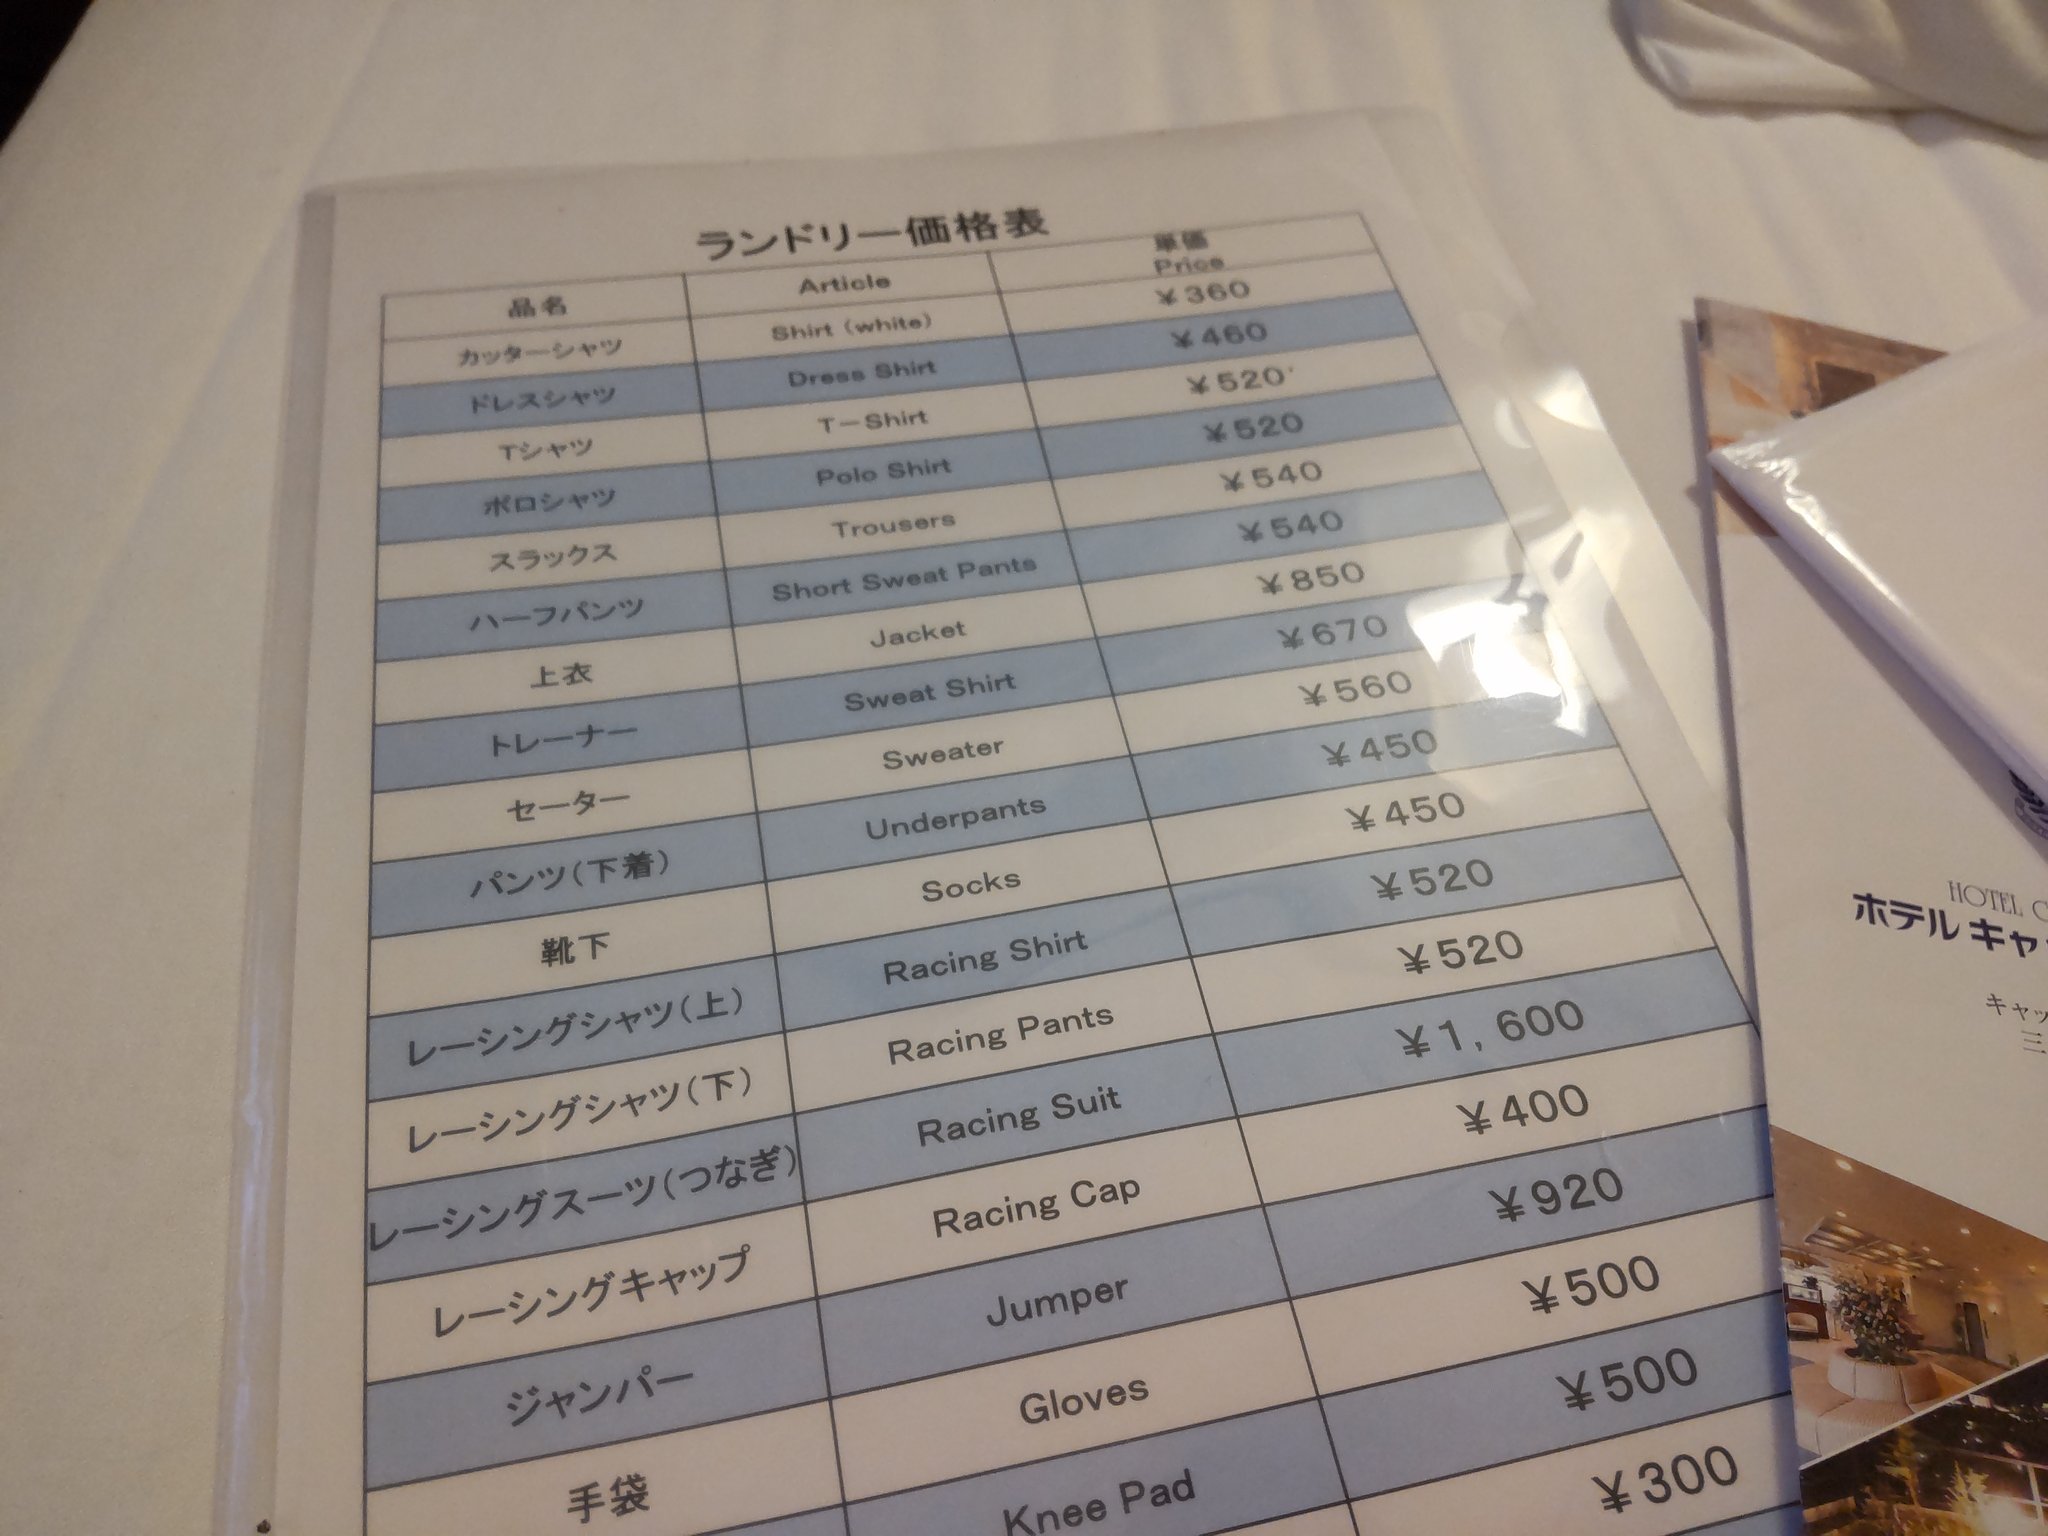 ランドリー価格表
品名 Article 単価
Price
カッターシャツ Shirt (white) ¥360
ドレスシャツ Dress Shirt ¥460
Tシャツ T-Shirt ¥520
ポロシャツ Polo Shirt ¥520
スラックス Trousers ¥540
ハーフパンツ Short Sweat Pants ¥540
上衣 Jacket ¥850
トレーナー Sweat Shirt ¥670
セーター Sweater ¥560
パンツ(下着) Underpants ¥450
靴下 Socks ¥450
レーシングシャツ(上) Racing Shirt ¥520
レーシングシャツ(下) Racing Pants ¥520
レーシングスーツ(つなぎ) Racing Suit ¥1,600
レーシングキャップ Racing Cap ¥400
ジャンパー Jumper ¥920
手袋 Gloves ¥500
Knee Pad ¥500
¥300
HOTEL C
ホテル キャ
キャッ
三